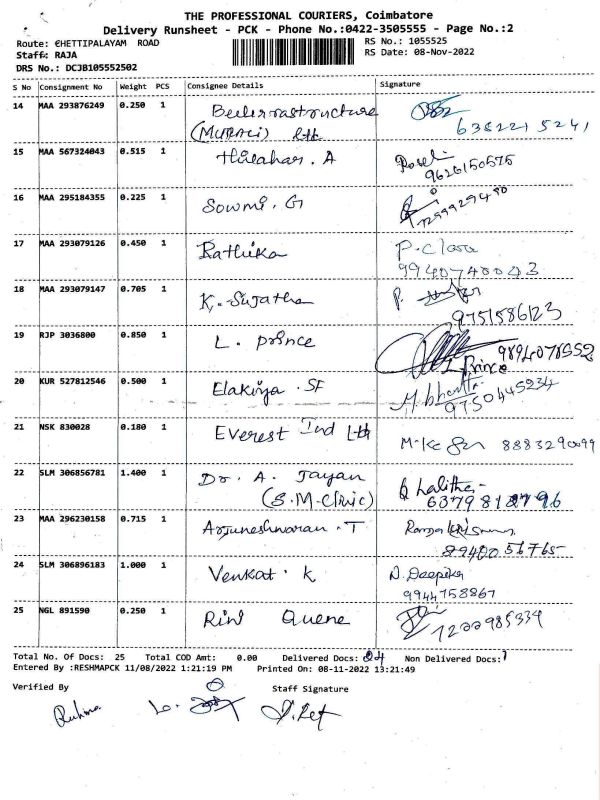 THE PROFESSIONAL COURIERS, Coimbatore
Delivery Runsheet - PCK - Phone No.:0422-3505555 - Page No.:2
Route: CHETTIPALAYAM ROAD RS No.: 1055525
Staff: RAJA RS Date: 08-Nov-2022
DRS No.: DCJB105552502
S No Consignment No Weight PCS Consignee Details Signature
14 MAA 293876249 0.250 1 (MURALI) 6382215241
15 MAA 567324043 0.515 1 A 9626150575
16 MAA 295184355 0.225 1 Sowmi. G
17 MAA 293079126 0.450 1 Rathika P. Clara
9940740003
18 MAA 293079147 0.705 1 K. Sujatha P.
9751586123
19 RJP 3036800 0.850 1 L. prince
L Prince
20 KUR 527812546 0.500 1 Elakiya . SF
9750445234
21 NSK 830028 0.180 1 Everest Ind Ltd 8883290099
22 SLM 306856781 1.400 1 Dr. A. Jayan Lalitha
(B.M-Clinic)
23 MAA 296230158 0.715 1 Arjuneshwaran . T
8940056765
24 SLM 306896183 1.000 1 Venkat . K N. Deepika
9944758867
25 NGL 891590 0.250 1 Rini Quene
Total No. Of Docs: 25 Total COD Amt: 0.00 Delivered Docs: 24 Non Delivered Docs: 1
Entered By :RESHMAPCK 11/08/2022 1:21:19 PM Printed On: 08-11-2022 13:21:49
Verified By Staff Signature